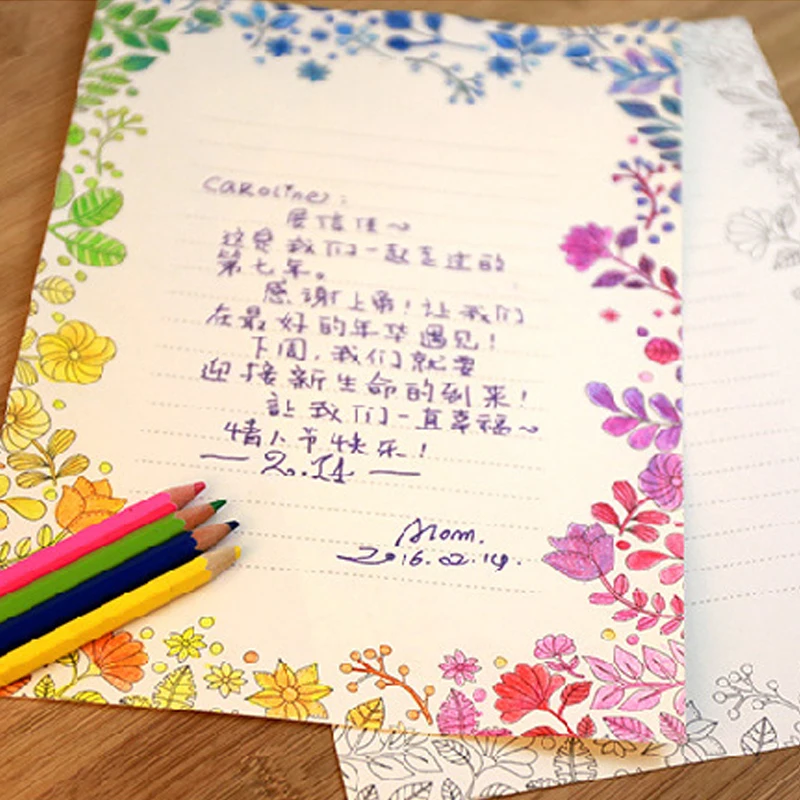 Caroline:
展信佳~
这是我们一起走过的
第七年。
感谢上帝!让我们
在最好的年华遇见!
下周,我们就要
迎接新生命的到来!
让我们一直幸福~
情人节快乐!
— 2.14 —
Atom.
2016.02.14.